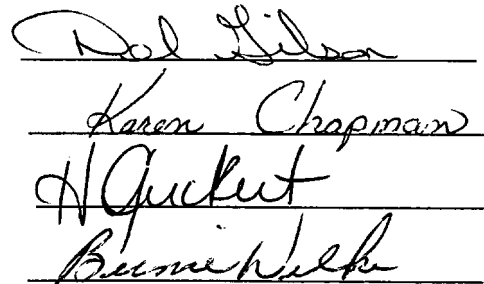 Dol Gilson
Karen Chapman
H Guckert
Bernie Wilke